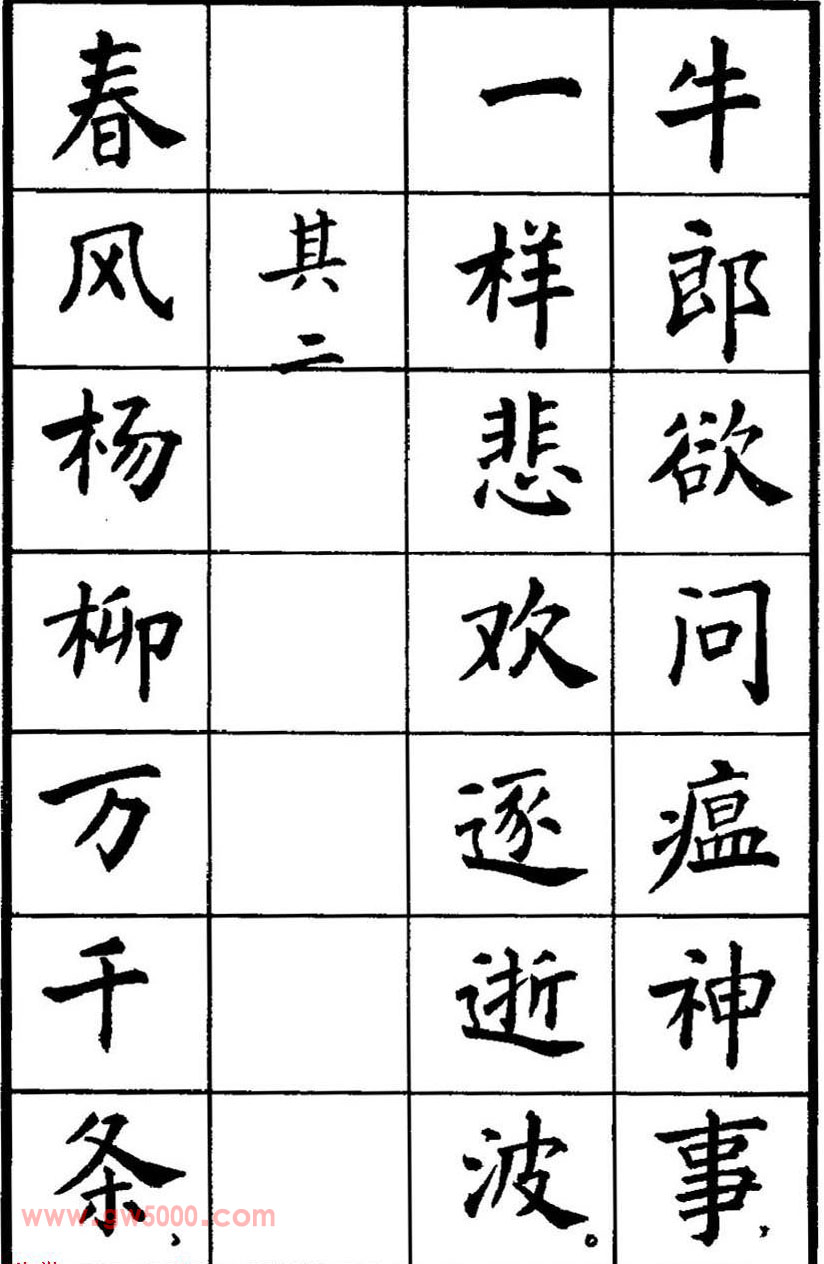 牛郎欲问瘟神事，
一样悲欢逐逝波。
其二
春风杨柳万千条，
www.gw5000.com